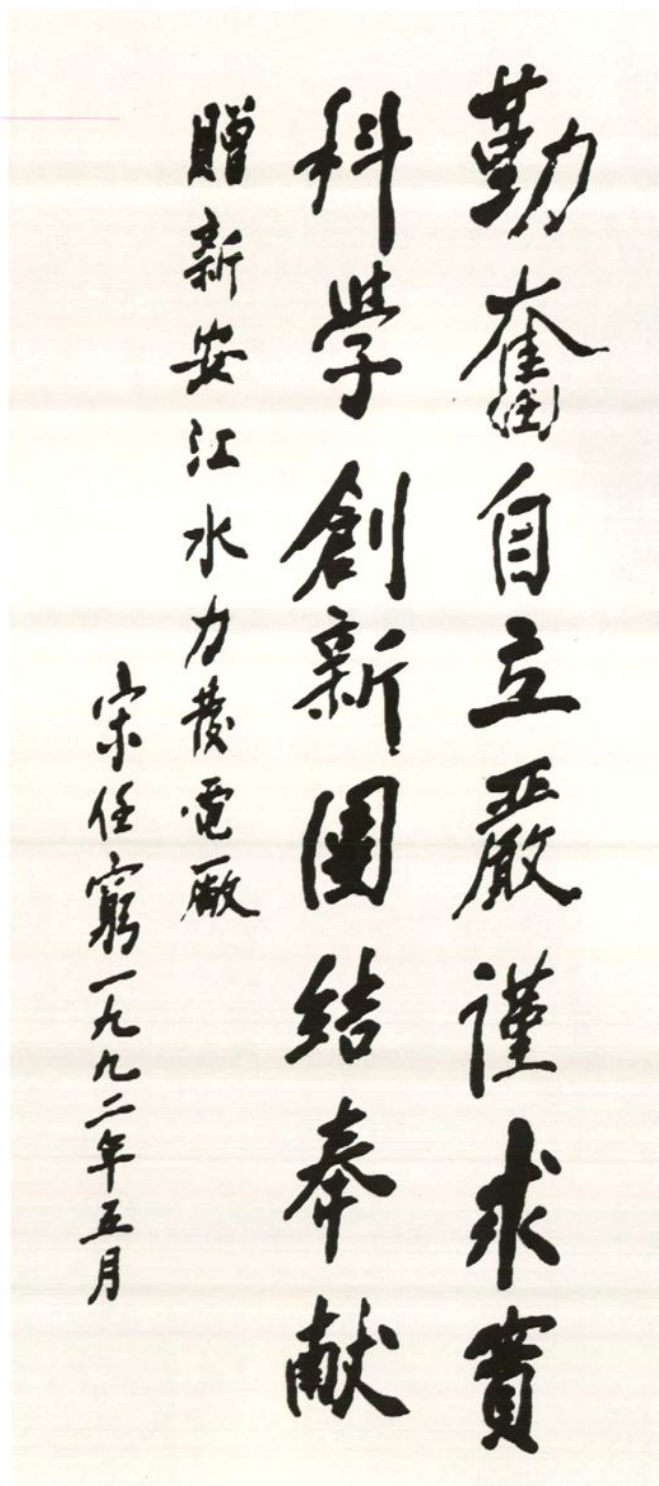 勤奮自立嚴謹求實
科學創新團結奉献
贈新安江水力發電廠
宋任窮一九九二年五月